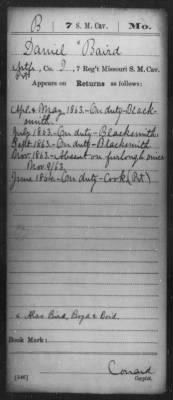 B 7 S. M. Cav. Mo.
Daniel "Baird
Pvt, Co. I, 7 Reg't Missouri S. M. Cav.
Appears on Returns as follows:
Apl & May 1863.-On duty-Black-
smith.
July 1863.-On duty-Blacksmith.
Sept 1863.-On duty-Blacksmith
Nov. 1863.-Absent on furlough since
Nov 9/63.
June 1864.-On duty-Cook (Pvt)
a Alas Baird, Boyd & Bord.
Book Mark:
Conrard
(546) Copyist.